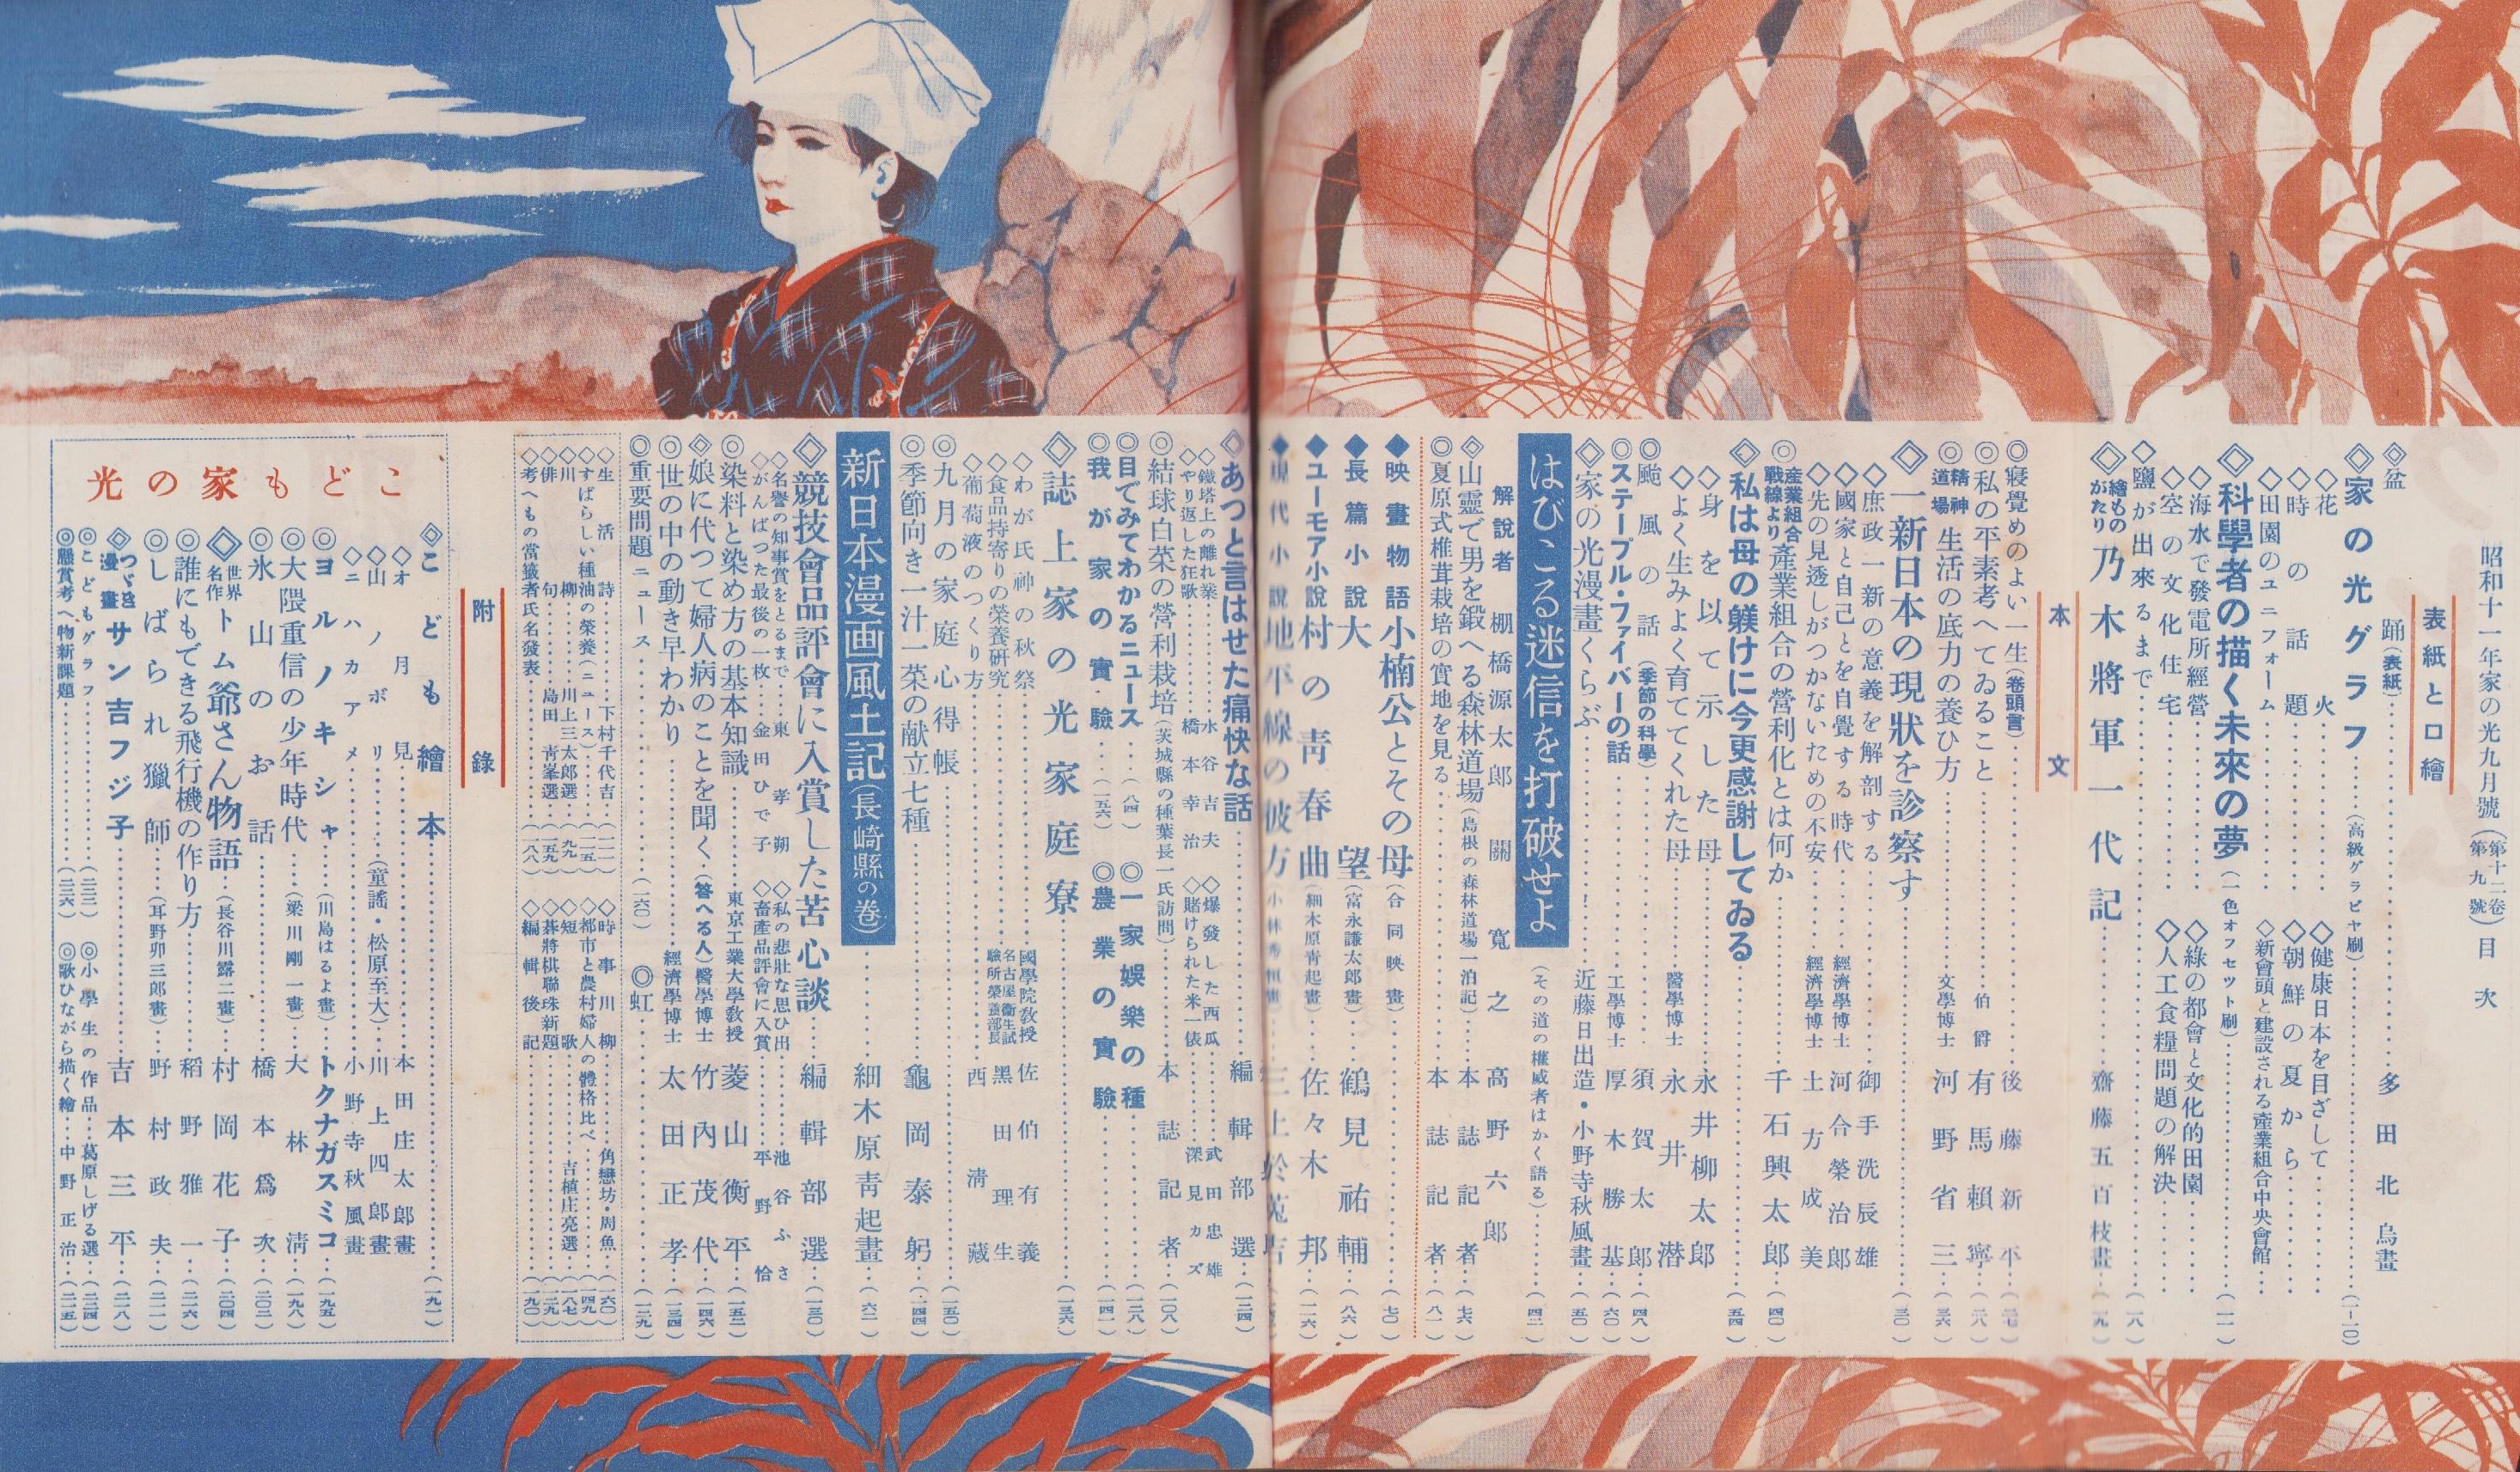 昭和十一年家の光九月號（第十二卷第九號）目次
表紙と口繪
◇盆踊（表紙）……多田北烏畫
◇家の光グラフ……（高級グラビヤ刷）……（一-一〇）
◇花火……◇健康日本を目ざして……
◇時の話題……◇朝鮮の夏から……
◇田園のユニフォーム……◇新會頭と建設される産業組合中央會館……
◇科學者の描く未來の夢（一色オフセツト刷）……（一一）
◇海水で發電所經營……◇綠の都會と文化的田園……
◇空の文化住宅……◇人工食糧問題の解決……
◇鹽が出來るまで……（一八）
◇繪ものがたり 乃木將軍一代記……齋藤五百枝畫……（一九）
本文
◎寢覺めのよい一生（卷頭言）……後藤新平……
◎私の平素考へてゐること……伯爵 有馬賴寧……（二八）
◎精神道場 生活の底力の養ひ方……文學博士 河野省三……（三六）
◇一新日本の現狀を診察す……（三〇）
◇庶政一新の意義を解剖する……御手洗辰雄
◇國家と自己とを自覺する時代……經濟學博士 河合榮治郎
◇先の見透しがつかないための不安……經濟學博士 土方成美
◎産業組合戰線より 産業組合の營利化とは何か……千石興太郎……（四〇）
◇私は母の躾けに今更感謝してゐる……（五四）
◇身を以て示した母……永井柳太郎
◇よく生みよく育ててくれた母……醫學博士 永井潜
◎颱風の話（季節の科學）……須賀太郎……（四八）
◎ステープル・ファイバーの話……工學博士 厚木勝基……（六〇）
◇家の光漫畫くらぶ……近藤日出造・小野寺秋風畫……（五〇）
はびこる迷信を打破せよ（その道の權威者はかく語る）……（四二）
解說者 棚橋源太郎 關寬之 高野六郎
◇山靈で男を鍛へる森林道場（島根の森林道場一泊記）……本誌記者……（七六）
◎夏原式椎茸栽培の實地を見る……本誌記者……（八二）
◆映畫物語 小楠公とその母（合同映畫）……（七〇）
◆長篇小說 大望（富永謙太郎畫）……鶴見祐輔……（八六）
◆ユーモア小說 村の靑春曲（細木原靑起畫）……佐々木邦……（一一六）
◆現代小說 地平線の彼方……三上於菟吉
◇あつと言はせた痛快な話……編輯部選……（一二四）
◇鐵塔上の離れ業……水谷吉夫 ◇爆發した西瓜……武田忠雄
◇やり返した狂歌……橋本幸治 ◇賭けられた米一俵……深見カズ
◎結球白菜の營利栽培（茨城縣の種葉長一氏訪問）……本誌記者……（一〇八）
◎目でみてわかるニュース……（八四）◎一家娛樂の種……（一二八）
◎我が家の實驗……（一五六）◎農業の實驗……（一四一）
◇誌上家の光家庭寮……（一三六）
◇わが氏神の秋祭……國學院敎授 佐伯有義
◇食品持寄りの榮養硏究……名古屋衞生試驗所榮養部長 黑田理生
◇葡萄液のつくり方……西淸藏
◎九月の家庭心得帳……（一五〇）
◎季節向き一汁一菜の献立七種……龜岡泰躬……（一四四）
新日本漫画風土記（長崎縣の卷）……細木原靑起畫……（六二）
◇競技會品評會に入賞した苦心談……編輯部選……（一三〇）
◇名譽の知事賞をとるまで……東孝朔 ◇私の悲壯な思ひ出……池谷ふさ
◇がんばつた最後の一枚……金田ひで子 ◇畜產品評會に入賞……平野恰
◎染料と染め方の基本知識……東京工業大學敎授 菱山衡平……（一五二）
◇娘に代つて婦人病のことを聞く（答へる人）醫學博士 竹內茂代……（一四六）
◎世の中の動き早わかり……經濟學博士 太田正孝……（一三四）
◎重要問題ニュース……（一六〇）◎虹……（一二九）
◇生活詩……下村千代吉……（一一一） ◇時事川柳……角戀坊・周魚……（一六〇）
◇すばらしい種油の榮養（ニュース）……（一一五）◇都市と農村婦人の體格比べ……（一四九）
◇川柳……川上三太郎選……（九九）◇短歌……吉植庄亮選……（一八七）
◇俳句……島田靑峯選……（一五九）◇碁將棋聯珠新題……（一二九）
◇考へもの當籤者氏名發表……（一八八）◇編輯後記……（一九〇）
附錄
こども家の光
◇こども繪本……（一九一）
◇オ月見……本田庄太郎畫
◇山ノボリ……（童謠・松原至大）……川上四郎畫
◇ニハカアメ……小野寺秋風畫
◎ヨルノキシャ……（川島はるよ畫）……トクナガスミコ……（一九五）
◎大隈重信の少年時代……（梁川剛一畫）……大林淸……（一九八）
◎氷山のお話……橋本爲次……（二〇二）
◇世界名作 トム爺さん物語……（長谷川露二畫）……村岡花子……（二〇四）
◎誰にもできる飛行機の作り方……稻野雅一……（二一六）
◎しばられ獵師……（耳野卯三郎畫）……野村政夫……（二一一）
◇つゞき漫畫 サン吉フジ子……吉本三平……（二一八）
◎こどもグラフ……（二三三）◎小學生の作品……葛原しげる選……（二二四）
◎懸賞考へ物新課題……（二三六）◎歌ひながら描く繪……中野正治……（二一五）